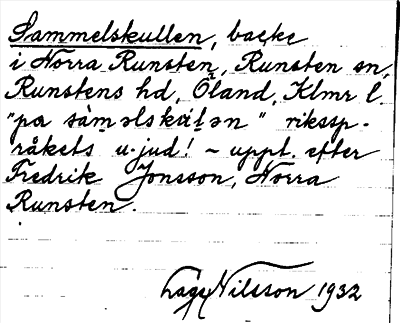 Sammelskullen, backe
i Norra Runsten, Runsten sn,
Runstens hd, Öland, Klmr l.
"pa sàməlskúlən" rikssp-
råkets u-jud! ~ uppt. efter
Fredrik Jonsson, Norra
Runsten.
Lage Nilsson 1932